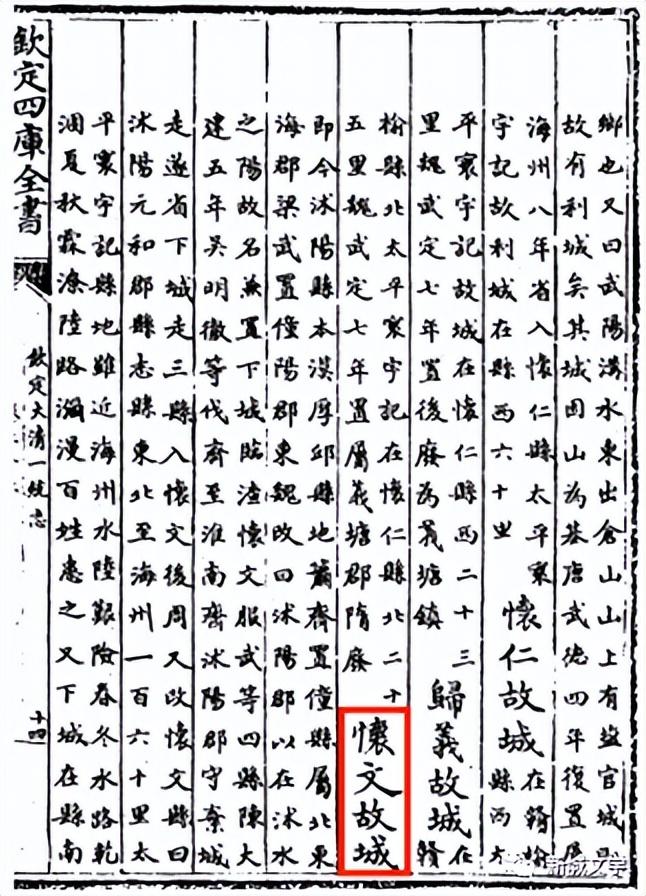 鄉也又曰武陽溝水東出倉山山上有鹽官城即
故有利城矣其城因山為基唐武德四年復置屬
海州八年省入懷仁縣太平寰
宇記故利城在縣西六十里
懷仁故城
在贛榆
縣西太
平寰宇記故城在懷仁縣西二十三
里魏武定七年置後廢為義塘鎮
歸義故城
在
贛
榆縣北太平寰宇記在懷仁縣北二十
五里魏武定七年置屬義塘郡隋廢
懷文故城
即今沭陽縣本漢厚邱縣地蕭齊置僮縣屬北東
海郡梁武置僮陽郡東魏改曰沭陽郡以在沭水
之陽故名兼置下城臨渣懷文服武等四縣陳大
建五年吳明徹等伐齊至淮南齊沭陽郡守棄城
走遂省下城走三縣入懷文後周又改懷文縣曰
沭陽元和郡縣志縣東北至海州一百六十里太
平寰宇記縣地雖近海州水陸艱險春冬水路乾
涸夏秋霖潦陸路瀰漫百姓患之又下城在縣南
欽定四庫全書
欽定大清一統志
十四